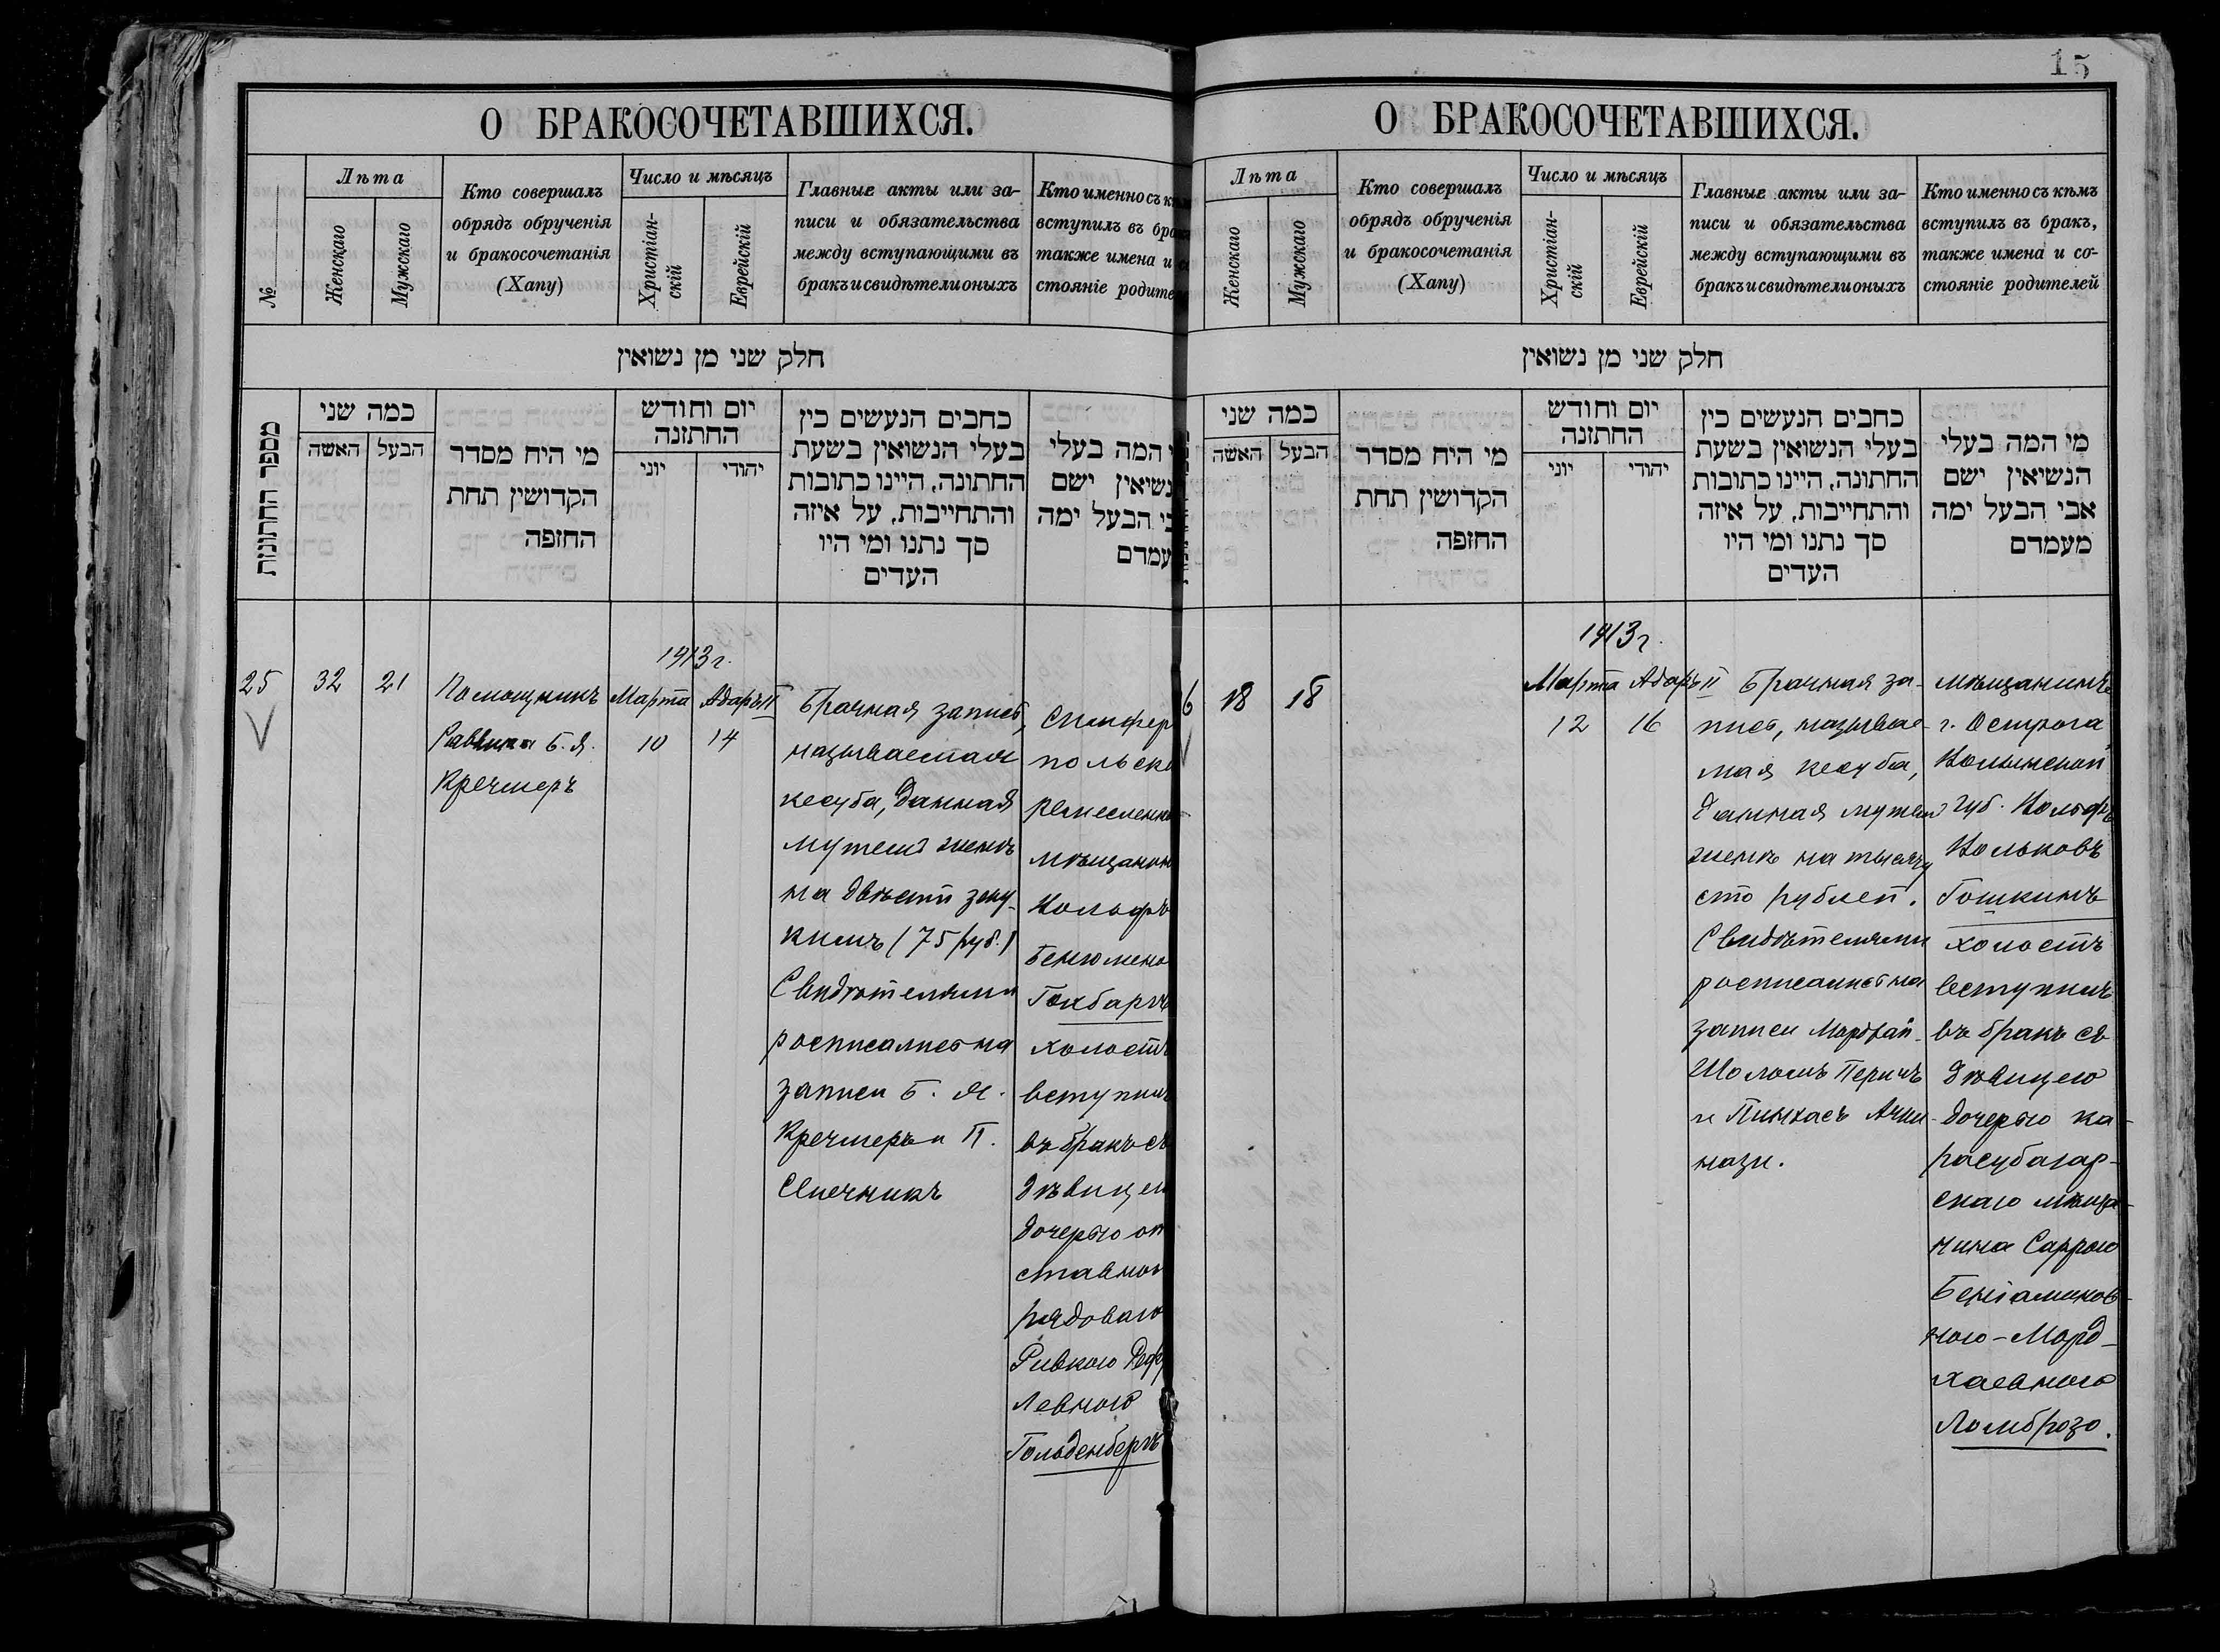 15
О БРАКОСОЧЕТАВШИХСЯ.
№
Лѣта
Женскаго
Мужскаго
Кто совершалъ
обрядъ обрученія
и бракосочетанія
(Хапу)
Число и мѣсяцъ
Христіан-
скій
Еврейскій
Главные акты или за-
писи и обязательства
между вступающими въ
бракъ и свидѣтели оныхъ
Кто именно съ
вступилъ въ
также имена и
стояніе
חלק שני מן נשואין
מספר החתונות
כמה שני
האשה
הבעל
מי היח מסדר
הקדושין תחת
החופה
יום וחודש
החתונה
יוני
יהודי
כחבים הנעשים כין
בעלי הנשואין בשעת
החתונה, היינו כתובות
והתחייבות, על איזה
סך נתנו ומי היו
העדים
המה בעלי
נשיאין ישם
הבעל ימה
עמדם
1913 г.
25
32
21
Помощникъ
Раввина Б. Я.
Кречмеръ
Марта
10
Адаръ II
14
Брачная запись,
называемая
кесуба, данная
мужемъ женѣ
на двѣсти зеку-
кимъ (75 руб.)
Свидѣтелями
росписались на
записи Б. Я.
Кречмеръ и П.
Спечникъ
Симфер
польск
ремесленн
мѣщанин
Вольфъ
Бенюмено
Гокбаргъ
холостъ
вступилъ
въ бракъ съ
дѣвицею
дочерью от
ставного
рядоваго
Ривкою
Левною
Гольденбергъ
О БРАКОСОЧЕТАВШИХСЯ.
Лѣта
Женскаго
Мужскаго
Кто совершалъ
обрядъ обрученія
и бракосочетанія
(Хапу)
Число и мѣсяцъ
Христіан-
скій
Еврейскій
Главные акты или за-
писи и обязательства
между вступающими въ
бракъ и свидѣтели оныхъ
Кто именно съ кѣмъ
вступилъ въ бракъ,
также имена и со-
стояніе родителей
חלק שני מן נשואין
כמה שני
האשה
הבעל
מי היח מסדר
הקדושין תחת
החופה
יום וחודש
החתונה
יוני
יהודי
כחבים הנעשים כין
בעלי הנשואין בשעת
החתונה, היינו כתובות
והתחייבות, על איזה
סך נתנו ומי היו
העדים
מי המה בעלי
הנשיאין ישם
אבי הבעל ימה
מעמדם
1913 г.
6
18
18
Марта
12
Адаръ II
16
Брачная за-
пись, называе-
мая кесуба,
данная мужемъ
женѣ на тысячу
сто рублей.
Свидѣтелями
росписались на
записи Мордхай-
Шоломъ Перичъ
и Пинхасъ Ачки-
нази.
мѣщанинъ
г. Острога
Волынской
губ. Вольфъ
Вольковъ
Гошкинъ
холостъ
вступилъ
въ бракъ съ
дѣвицею
дочерью ка-
расубазар-
скаго мѣща-
нина Саррою
Беніаминов-
ною-Морд-
хаевною
Ломброзо.